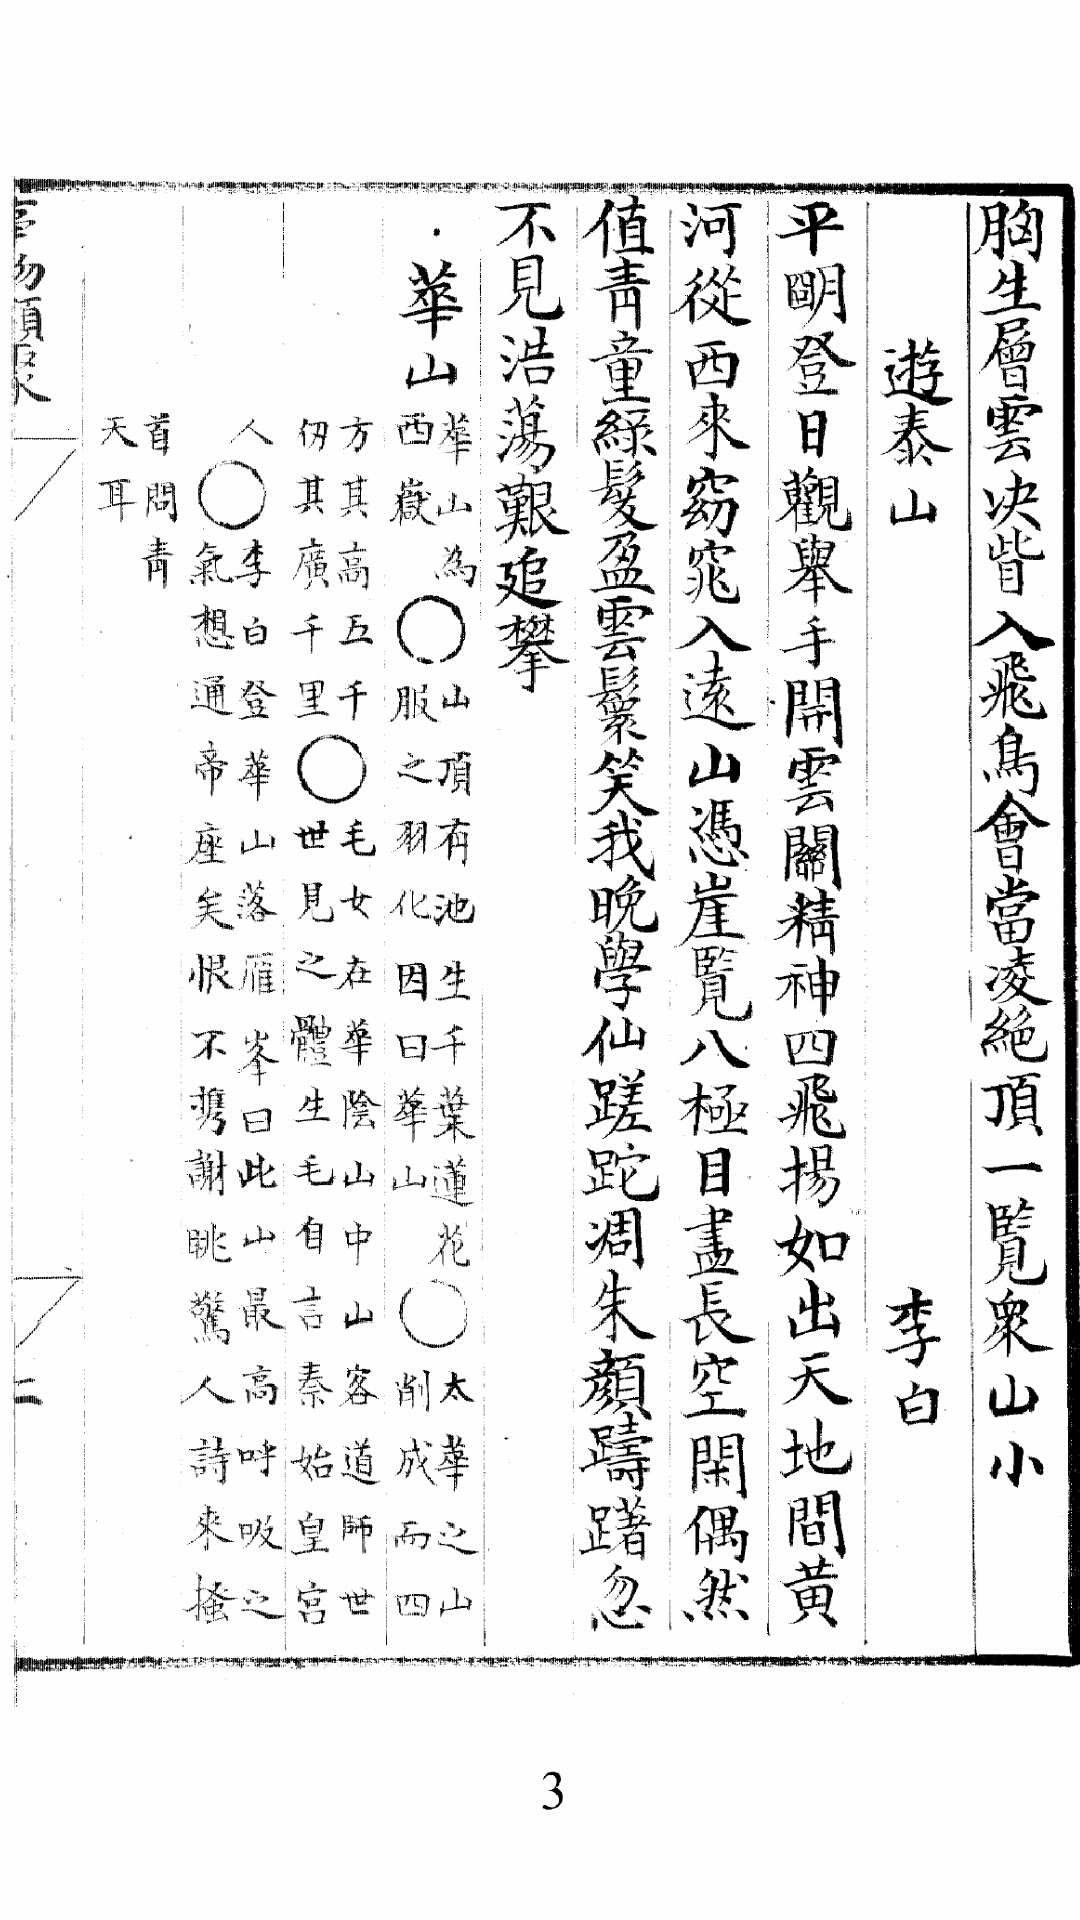 胸生層雲决眥入飛鳥會當凌絕頂一覽衆山小
遊泰山 李白
平朙登日觀舉手開雲關精神四飛揚如出天地間黃
河從西來窈窕入遠山憑崖覽八極目盡長空閑偶然
值靑童綠髮盈雲鬟笑我晚學仙蹉跎凋朱顏躊躇忽
不見浩蕩艱追攀
華山
華山為
西嶽
○
山頂有池生千葉蓮花
服之羽化因曰華山
○
太華之山
削成而四
方其高五千
仞其廣千里
○
毛女在華陰山中山客道師世
世見之體生毛自言秦始皇宮
人
○
李白登華山落雁峯曰此山最高呼吸之
氣想通帝座矣恨不携謝眺驚人詩來搔
首問靑
天耳
二
3